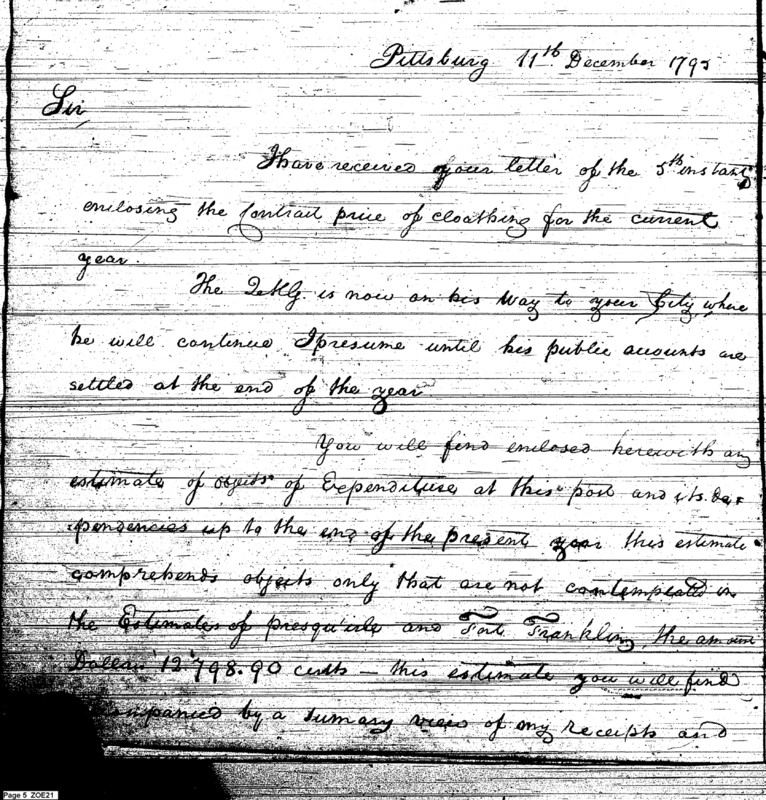 Pittsburg 11th December 1795
Sir,
I have received your letter of the 5th instant
enclosing the Contract price of cloathing for the current
year.
The QMG. is now on his way to your City where
he will continue I presume until his public accounts are
settled at the end of the year
You will find enclosed herewith an
estimate of objects of Expenditure at this post and its de=
pendencies up to the end of the present year this estimate
comprehends objects only that are not contemplated in
the Estimates of presqu'isle and Fort Franklin, the amount
Dollars 12798.90 cents — this estimate you will find
by a sumary view of my receipts and
Page 5 ZOE21